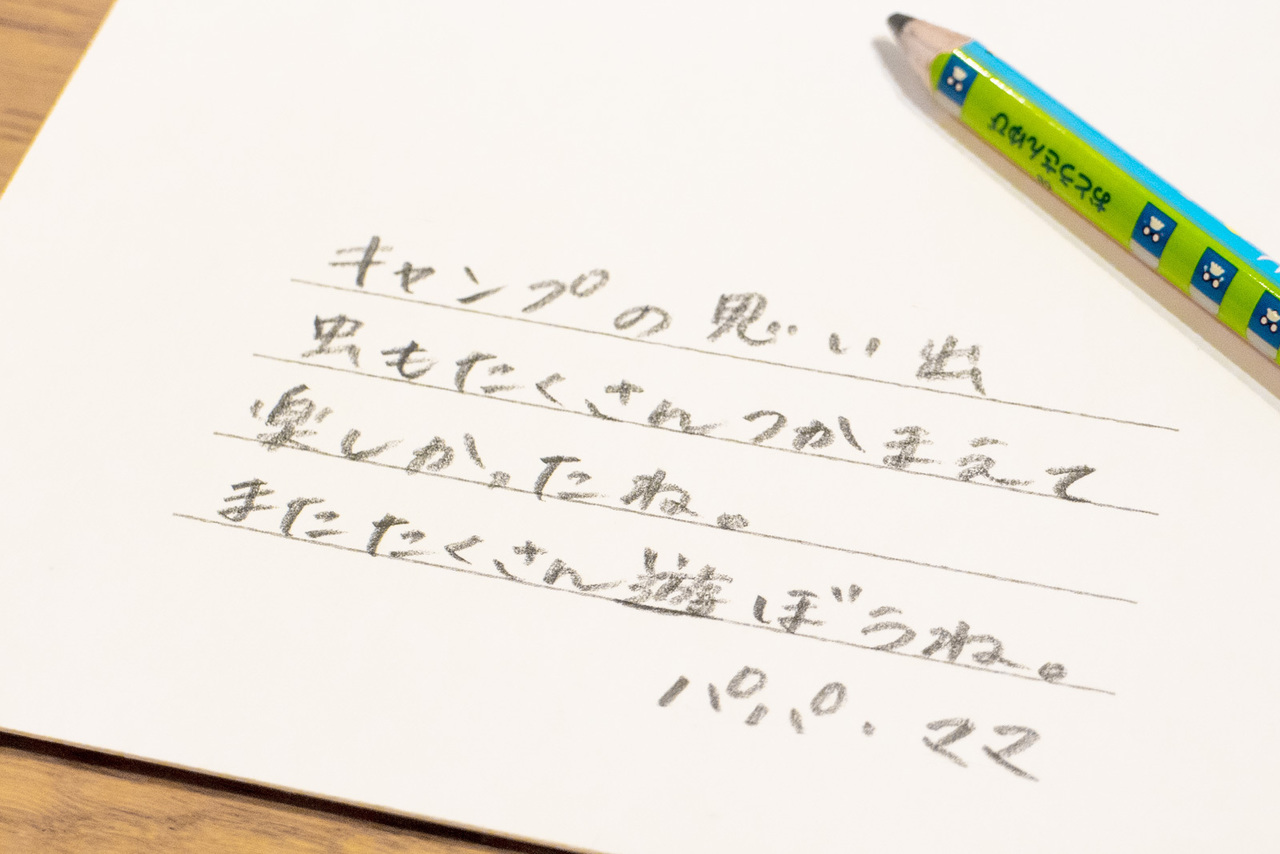 キャンプの思い出
虫もたくさんつかまえて
楽しかったね。
またたくさん遊ぼうね。
パパ・ママ
おとうさんえんぴつ